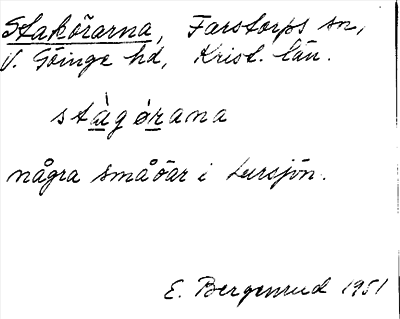 Stakörarna, Farstorps sn,
V. Göinge hd, Krist. län.
stàgórana
några småöar i Lursjön.
E. Bergenrud 1951